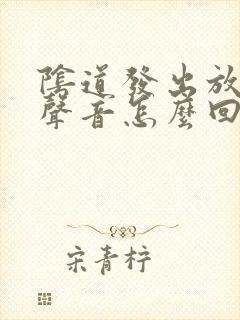 陰道發出放
聲音怎麼回
宋青梓